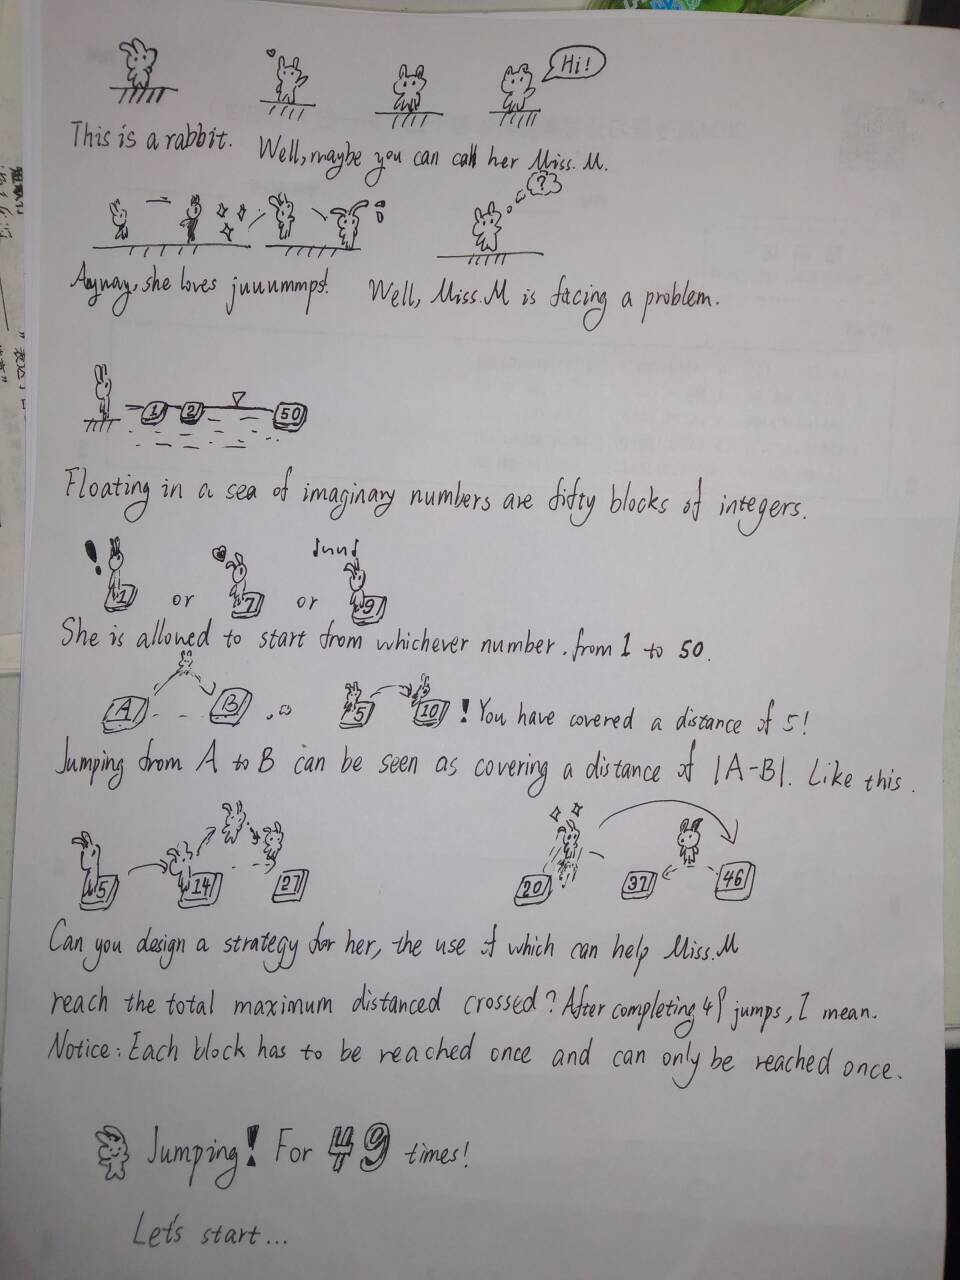 Hi!
This is a rabbit. Well, maybe you can call her Miss. M.
?
Aynway, she loves juuummmps! Well, Miss. M is facing a problem.
1 2 50
Floating in a sea of imaginary numbers are fifty blocks of integers.
! 1 or 7 or 9
She is allowed to start from whichever number. from 1 to 50.
A B 5 10 ! You have covered a distance of 5!
Jumping from A to B can be seen as covering a distance of |A-B|. Like this.
5 14 27 20 37 46
Can you design a strategy for her, the use of which can help Miss. M
reach the total maximum distanced crossed? After completing 49 jumps, I mean.
Notice: Each block has to be reached once and can only be reached once.
Jumping! For 49 times!
Let's start...